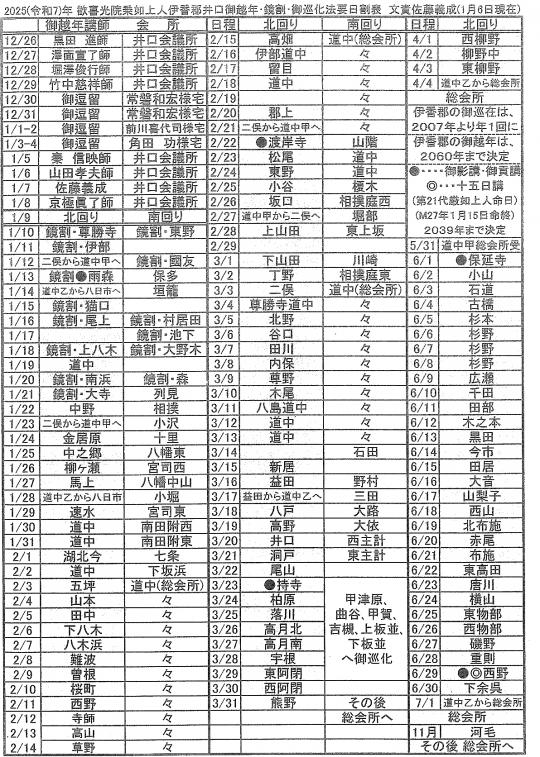 2025(令和7)年 歓喜光院乗如上人伊香郡井口御越年・鏡割・御巡化法要日割表 文責佐藤義成(1月6日現在)
御越年講師 会 所 日程 北回り 南回り 日程 北回り
12/26 黒田 進師 井口会議所 2/15 高畑 道中(総会所) 4/1 西柳野
12/27 澤面宣了師 井口会議所 2/16 伊部道中 々 4/2 柳野中
12/28 堀澤俊行師 井口会議所 2/17 留目 々 4/3 東柳野
12/29 竹中慈祥師 井口会議所 2/18 道中 々 4/4 道中乙から総会所
12/30 御逗留 常磐和宏様宅 2/19 々 総会所
12/31 御逗留 常磐和宏様宅 2/20 郡上 々 伊香郡の御巡在は、
1/1-2 御逗留 前川喜代司様宅 2/21 二俣から道中甲へ 々 2007年より年1回に
1/3-4 御逗留 角田 功様宅 2/22 ●渡岸寺 山階 伊香郡の御越年は、
1/5 秦 信映師 井口会議所 2/23 松尾 道中 2060年まで決定
1/6 山田孝夫師 井口会議所 2/24 東野 道中 ●‥‥御影講・御貢講
1/7 佐藤義成 井口会議所 2/25 小谷 榎木 ◎‥‥十五日講
1/8 京極眞了師 井口会議所 2/26 坂口 相撲庭西 (第21代厳如上人命日)
1/9 北回り 南回り 2/27 道中甲から二俣へ 堀部 (M27年1月15日命終)
1/10 鏡割・尊勝寺 鏡割・東野 2/28 上山田 東上坂 2039年まで決定
1/11 鏡割・伊部 2/29 5/31 道中甲総会所受
1/12 二俣から道中甲へ 鏡割・國友 3/1 下山田 川崎 6/1 ●保延寺
1/13 鏡割●雨森 保多 3/2 丁野 相撲庭東 6/2 小山
1/14 道中乙から八日市へ 垣籠 3/3 二俣 道中(総会所) 6/3 石道
1/15 鏡割・猫口 3/4 尊勝寺道中 々 6/4 古橋
1/16 鏡割・尾上 鏡割・村居田 3/5 北野 々 6/5 杉本
1/17 鏡割・池下 3/6 谷口 々 6/6 杉野
1/18 鏡割・上八木 鏡割・大野木 3/7 田川 々 6/7 杉野
1/19 道中 3/8 内保 々 6/8 杉野
1/20 鏡割・南浜 鏡割・森 3/9 尊野 々 6/9 広瀬
1/21 鏡割・大寺 列見 3/10 木尾 々 6/10 千田
1/22 中野 相撲 3/11 八島道中 々 6/11 田部
1/23 二俣から道中甲へ 小沢 3/12 道中 々 6/12 木之本
1/24 金居原 十里 3/13 道中 々 6/13 黒田
1/25 中之郷 八幡東 3/14 石田 6/14 今市
1/26 柳ヶ瀬 宮司西 3/15 新居 6/15 田居
1/27 馬上 八幡中山 3/16 益田 野村 6/16 大音
1/28 道中乙から八日市 小堀 3/17 益田から道中乙へ 三田 6/17 山梨子
1/29 速水 宮司東 3/18 八戸 大路 6/18 西山
1/30 道中 南田附西 3/19 高野 大依 6/19 北布施
1/31 道中 南田附東 3/20 井口 西主計 6/20 赤尾
2/1 湖北今 七条 3/21 洞戸 東主計 6/21 布施
2/2 道中 下坂浜 3/22 尾山 6/22 東高田
2/3 五坪 道中(総会所) 3/23 ●持寺 6/23 唐川
2/4 山本 々 3/24 柏原 甲津原、 6/24 横山
2/5 田中 々 3/25 落川 曲谷、甲賀、 6/25 東物部
2/6 下八木 々 3/26 高月北 吉槻、上板並、 6/26 西物部
2/7 八木浜 々 3/27 高月南 下板並 6/27 磯野
2/8 難波 々 3/28 宇根 へ御巡化 6/28 重則
2/9 曽根 々 3/29 東阿閉 6/29 ●◎西野
2/10 桜町 々 3/30 西阿閉 6/30 下余呉
2/11 西野 々 3/31 熊野 その後 7/1 道中乙から総会所
2/12 寺師 々 総会所へ 総会所
2/13 高山 々 11月 河毛
2/14 草野 々 その後 総会所へ